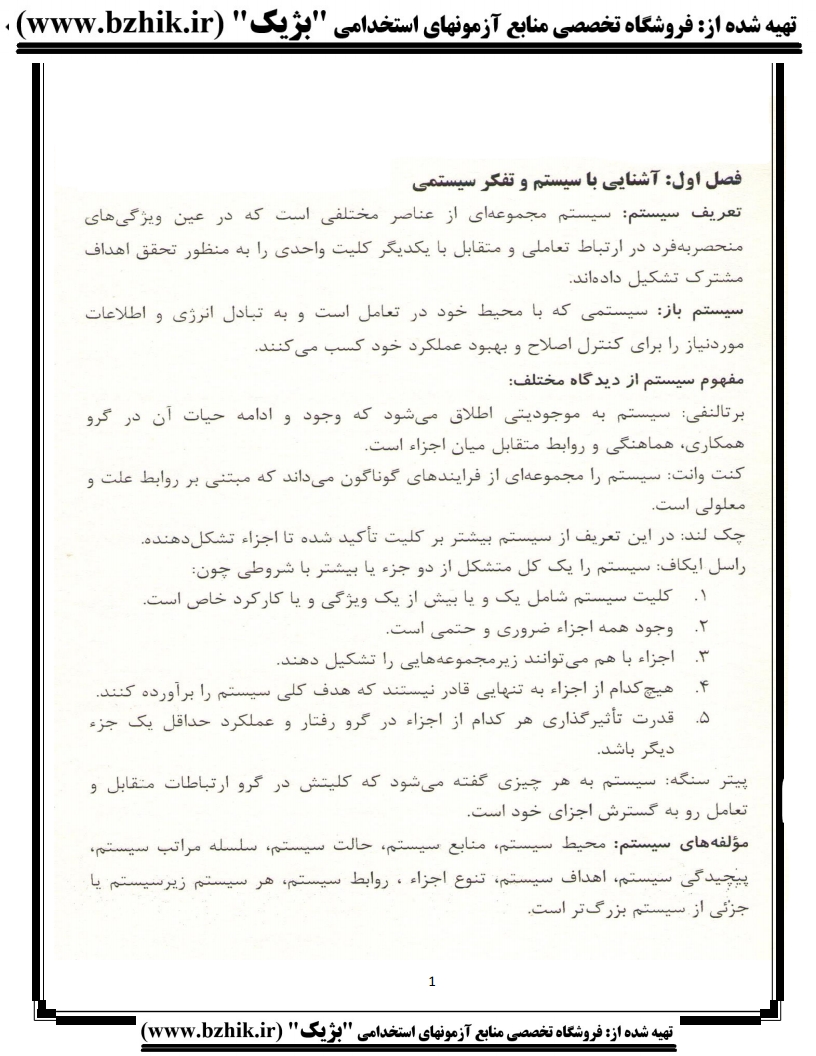 تهیه شده از: فروشگاه تخصصی منابع آزمونهای استخدامی "بژیک" (www.bzhik.ir) .
فصل اول: آشنایی با سیستم و تفکر سیستمی
تعریف سیستم: سیستم مجموعه‌ای از عناصر مختلفی است که در عین ویژگی‌های
منحصربه‌فرد در ارتباط تعاملی و متقابل با یکدیگر کلیت واحدی را به منظور تحقق اهداف
مشترک تشکیل داده‌اند.
سیستم باز: سیستمی که با محیط خود در تعامل است و به تبادل انرژی و اطلاعات
موردنیاز را برای کنترل اصلاح و بهبود عملکرد خود کسب می‌کنند.
مفهوم سیستم از دیدگاه مختلف:
برتالنفی: سیستم به موجودیتی اطلاق می‌شود که وجود و ادامه حیات آن در گرو
همکاری، هماهنگی و روابط متقابل میان اجزاء است.
کنت وانت: سیستم را مجموعه‌ای از فرایندهای گوناگون می‌داند که مبتنی بر روابط علت و
معلولی است.
چک لند: در این تعریف از سیستم بیشتر بر کلیت تأکید شده تا اجزاء تشکل‌دهنده.
راسل ایکاف: سیستم را یک کل متشکل از دو جزء یا بیشتر با شروطی چون:
۱. کلیت سیستم شامل یک و یا بیش از یک ویژگی و یا کارکرد خاص است.
۲. وجود همه اجزاء ضروری و حتمی است.
۳. اجزاء با هم می‌توانند زیرمجموعه‌هایی را تشکیل دهند.
۴. هیچ‌کدام از اجزاء به تنهایی قادر نیستند که هدف کلی سیستم را برآورده کنند.
۵. قدرت تأثیرگذاری هر کدام از اجزاء در گرو رفتار و عملکرد حداقل یک جزء
دیگر باشد.
پیتر سنگه: سیستم به هر چیزی گفته می‌شود که کلیتش در گرو ارتباطات متقابل و
تعامل رو به گسترش اجزای خود است.
مؤلفه‌های سیستم: محیط سیستم، منابع سیستم، حالت سیستم، سلسله مراتب سیستم،
پیچیدگی سیستم، اهداف سیستم، تنوع اجزاء ، روابط سیستم، هر سیستم زیرسیستم یا
جزئی از سیستم بزرگ‌تر است.
1
تهیه شده از: فروشگاه تخصصی منابع آزمونهای استخدامی "بژیک" (www.bzhik.ir)